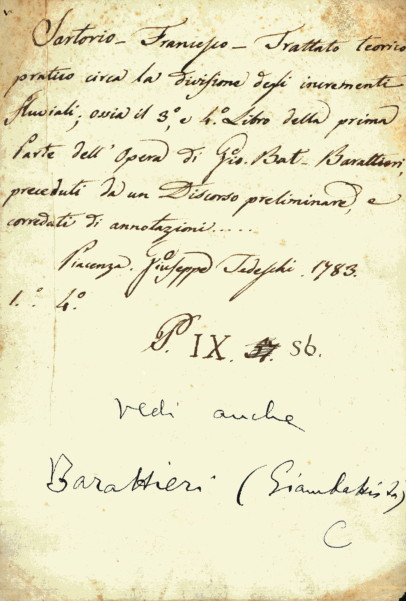 Sartorio - Francesco - Trattato teorico
pratico circa la divisione degli incrementi
fluviali; ossia il 3.º e 4.º Libro della prima
Parte dell'Opera di Gio. Bat- Barattieri,
preceduti da un Discorso preliminare, e
corredati di annotazioni.....
Piacenza. Giuseppe Tedeschi. 1783.
1.º 4.º
P. IX. 56.
vedi anche
Barattieri (Giambattista)
C